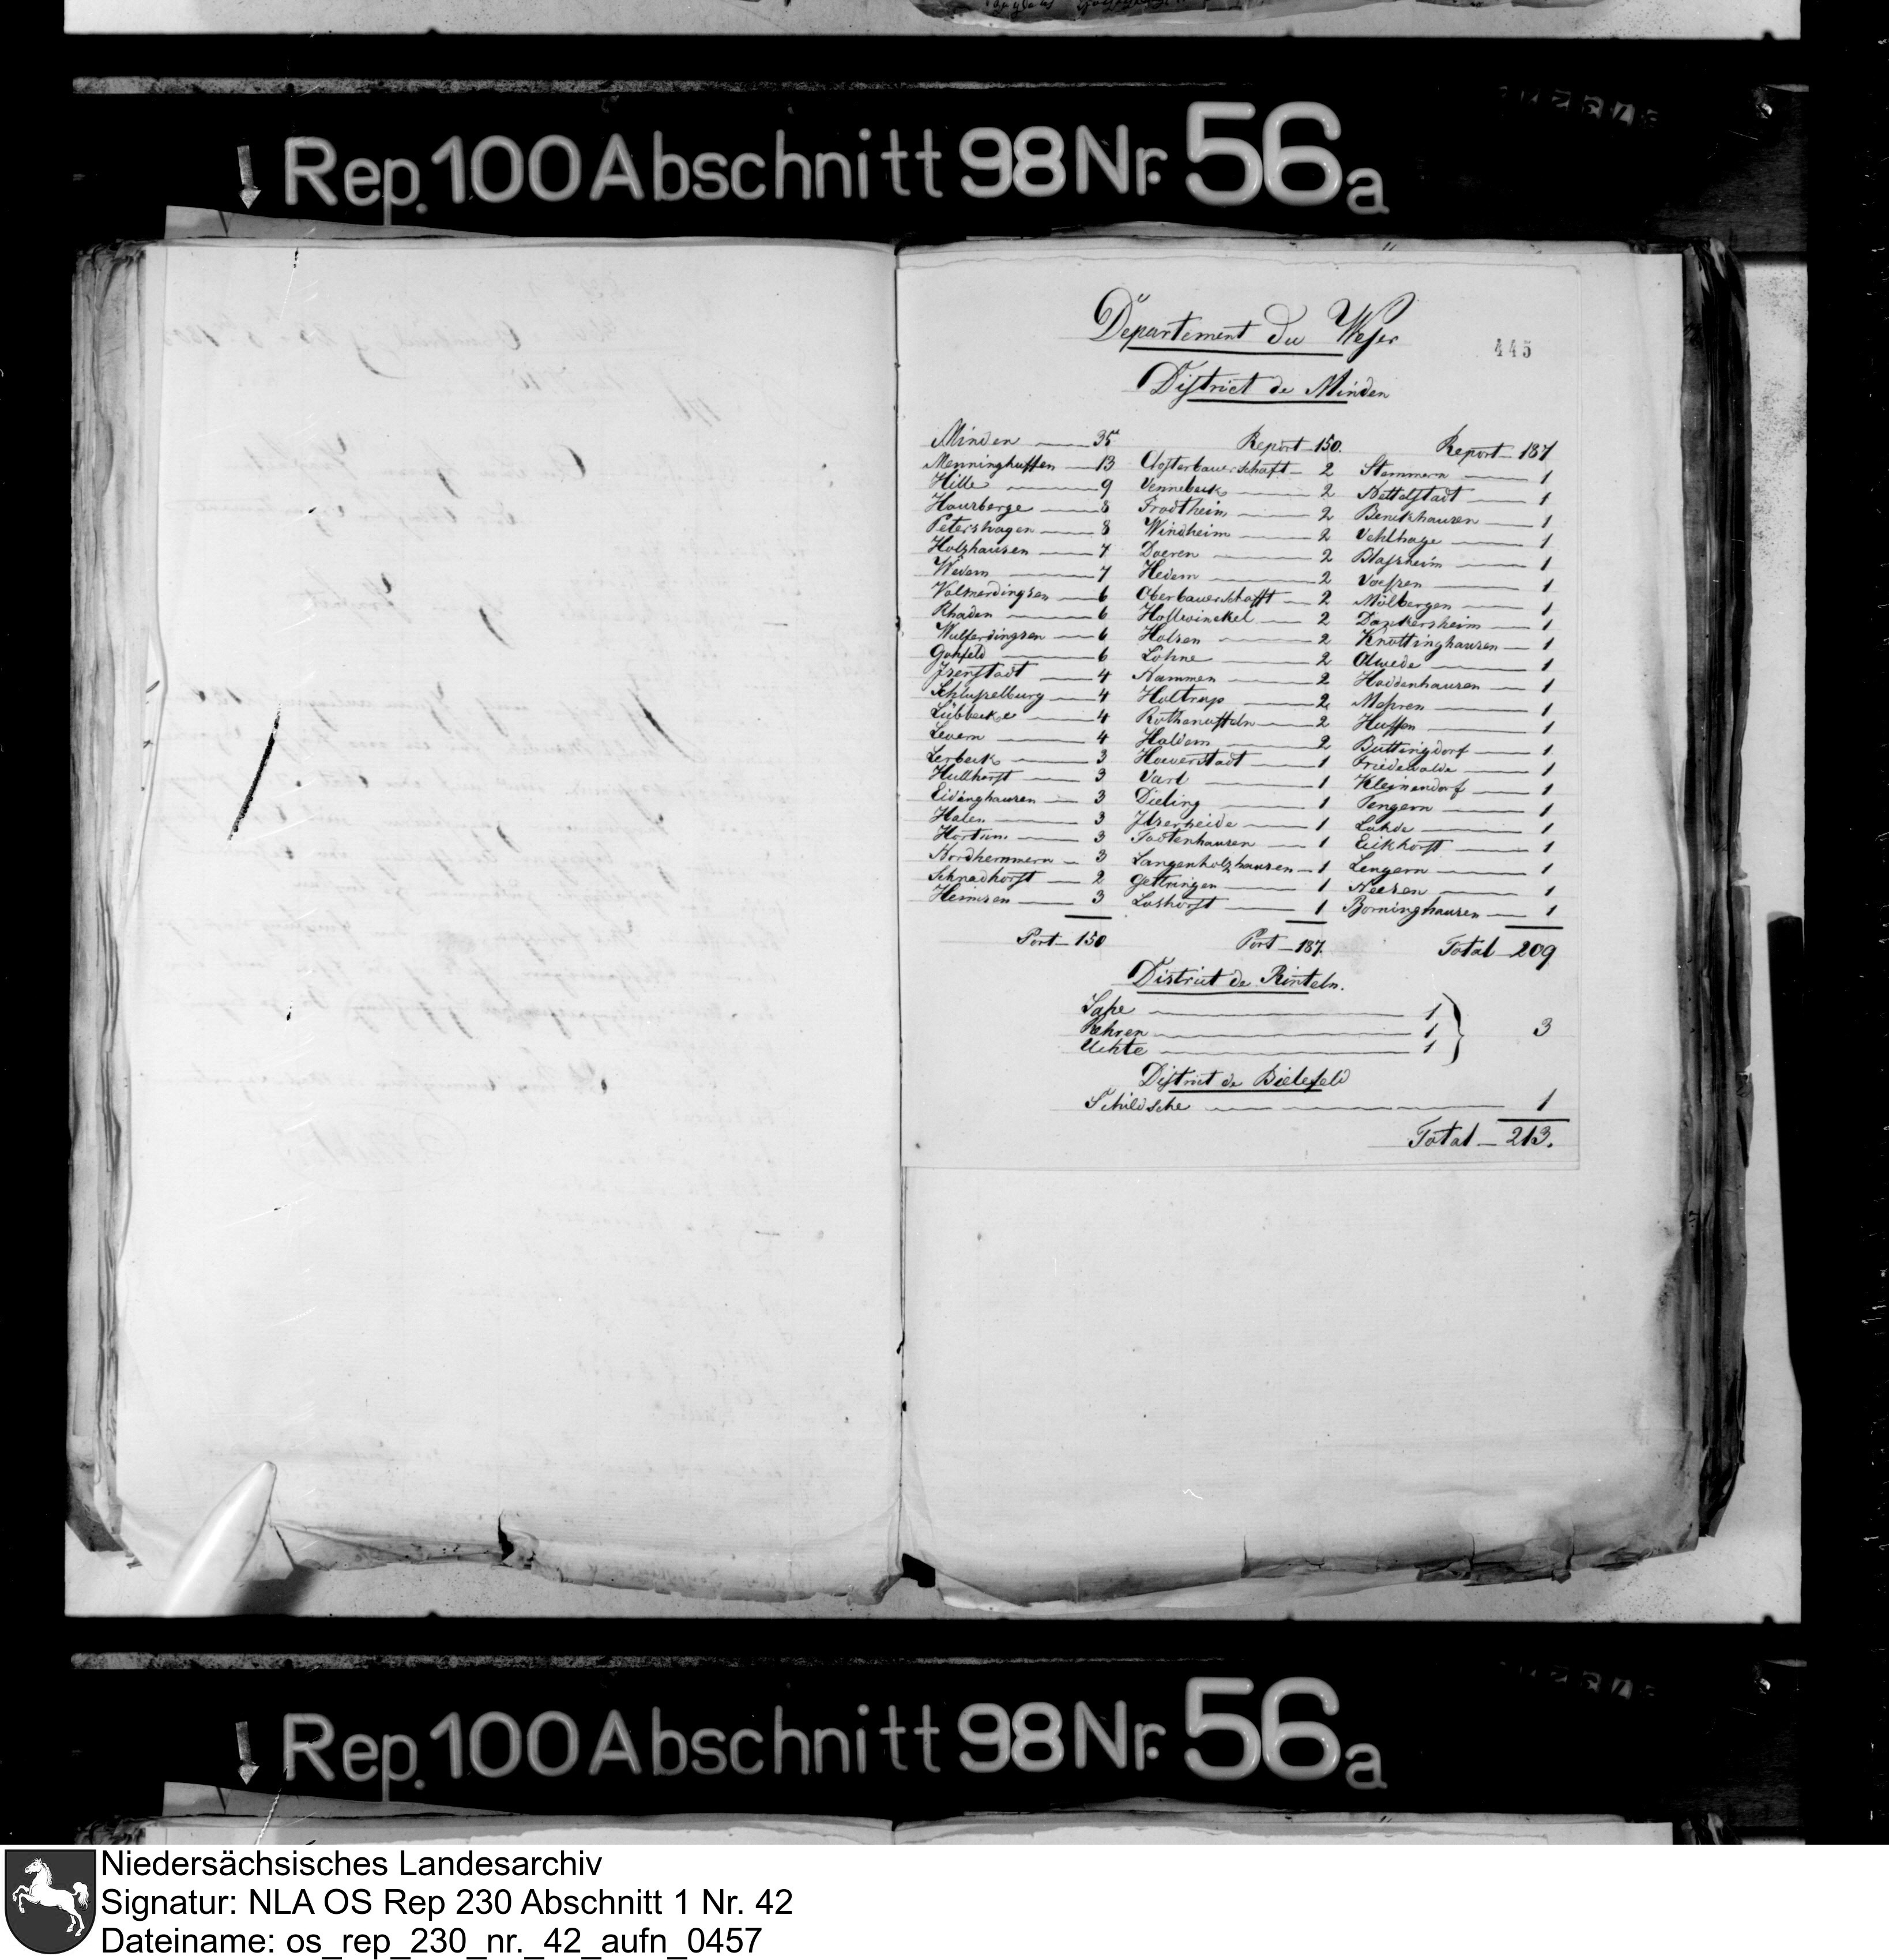 Rep. 100 Abschnitt 98 Nr. 56a
Departement du Weser
445
District de Minden
Minden 35
Menninghuffen 13
Hille 9
Hausberge 8
Petershagen 8
Holzhausen 7
Wedem 7
Volmerdingsen 6
Rhaden 6
Wulferdingsen 6
Gohfeld 6
Isenstadt 4
Schlusselburg 4
Lübbecke 4
Levern 4
Lerbeck 3
Hullhorst 3
Eidinghausen 3
Halen 3
Hartum 3
Nordhemmern 3
Schnadhorst 2
Heimsen 3
Port 150
Report 150.
Closterbauerschaft 2
Vennebeck 2
Frodtheim 2
Windheim 2
Doeren 2
Hedem 2
Oberbauerschafft 2
Hollwinckel 2
Holsen 2
Löhne 2
Nammen 2
Holtrup 2
Rothenuffeln 2
Haldem 2
Haverstadt 1
Varl 1
Dieling 1
Ilserheide 1
Todtenhausen 1
Langenholzhausen 1
Gettringen 1
Lashorst 1
Port 187.
Report 187
Stemmern 1
Nettelstadt 1
Benckhausen 1
Vehlhage 1
Blassheim 1
Voessen 1
Mölbergen 1
Danckersheim 1
Knottinghausen 1
Alwede 1
Haddenhausen 1
Messren 1
Huffen 1
Buttingdorf 1
Friedewalde 1
Kleinendorf 1
Tengern 1
Lahde 1
Eickhorst 1
Lengern 1
Neesen 1
Borninghausen 1
Total 209
District de Rinteln.
1
Rehren 1
Uchte 1
3
District de Bielefeld
Schildsche 1
Total 213.
Rep. 100 Abschnitt 98 Nr. 56a
Niedersächsisches Landesarchiv
Signatur: NLA OS Rep 230 Abschnitt 1 Nr. 42
Dateiname: os_rep_230_nr._42_aufn_0457